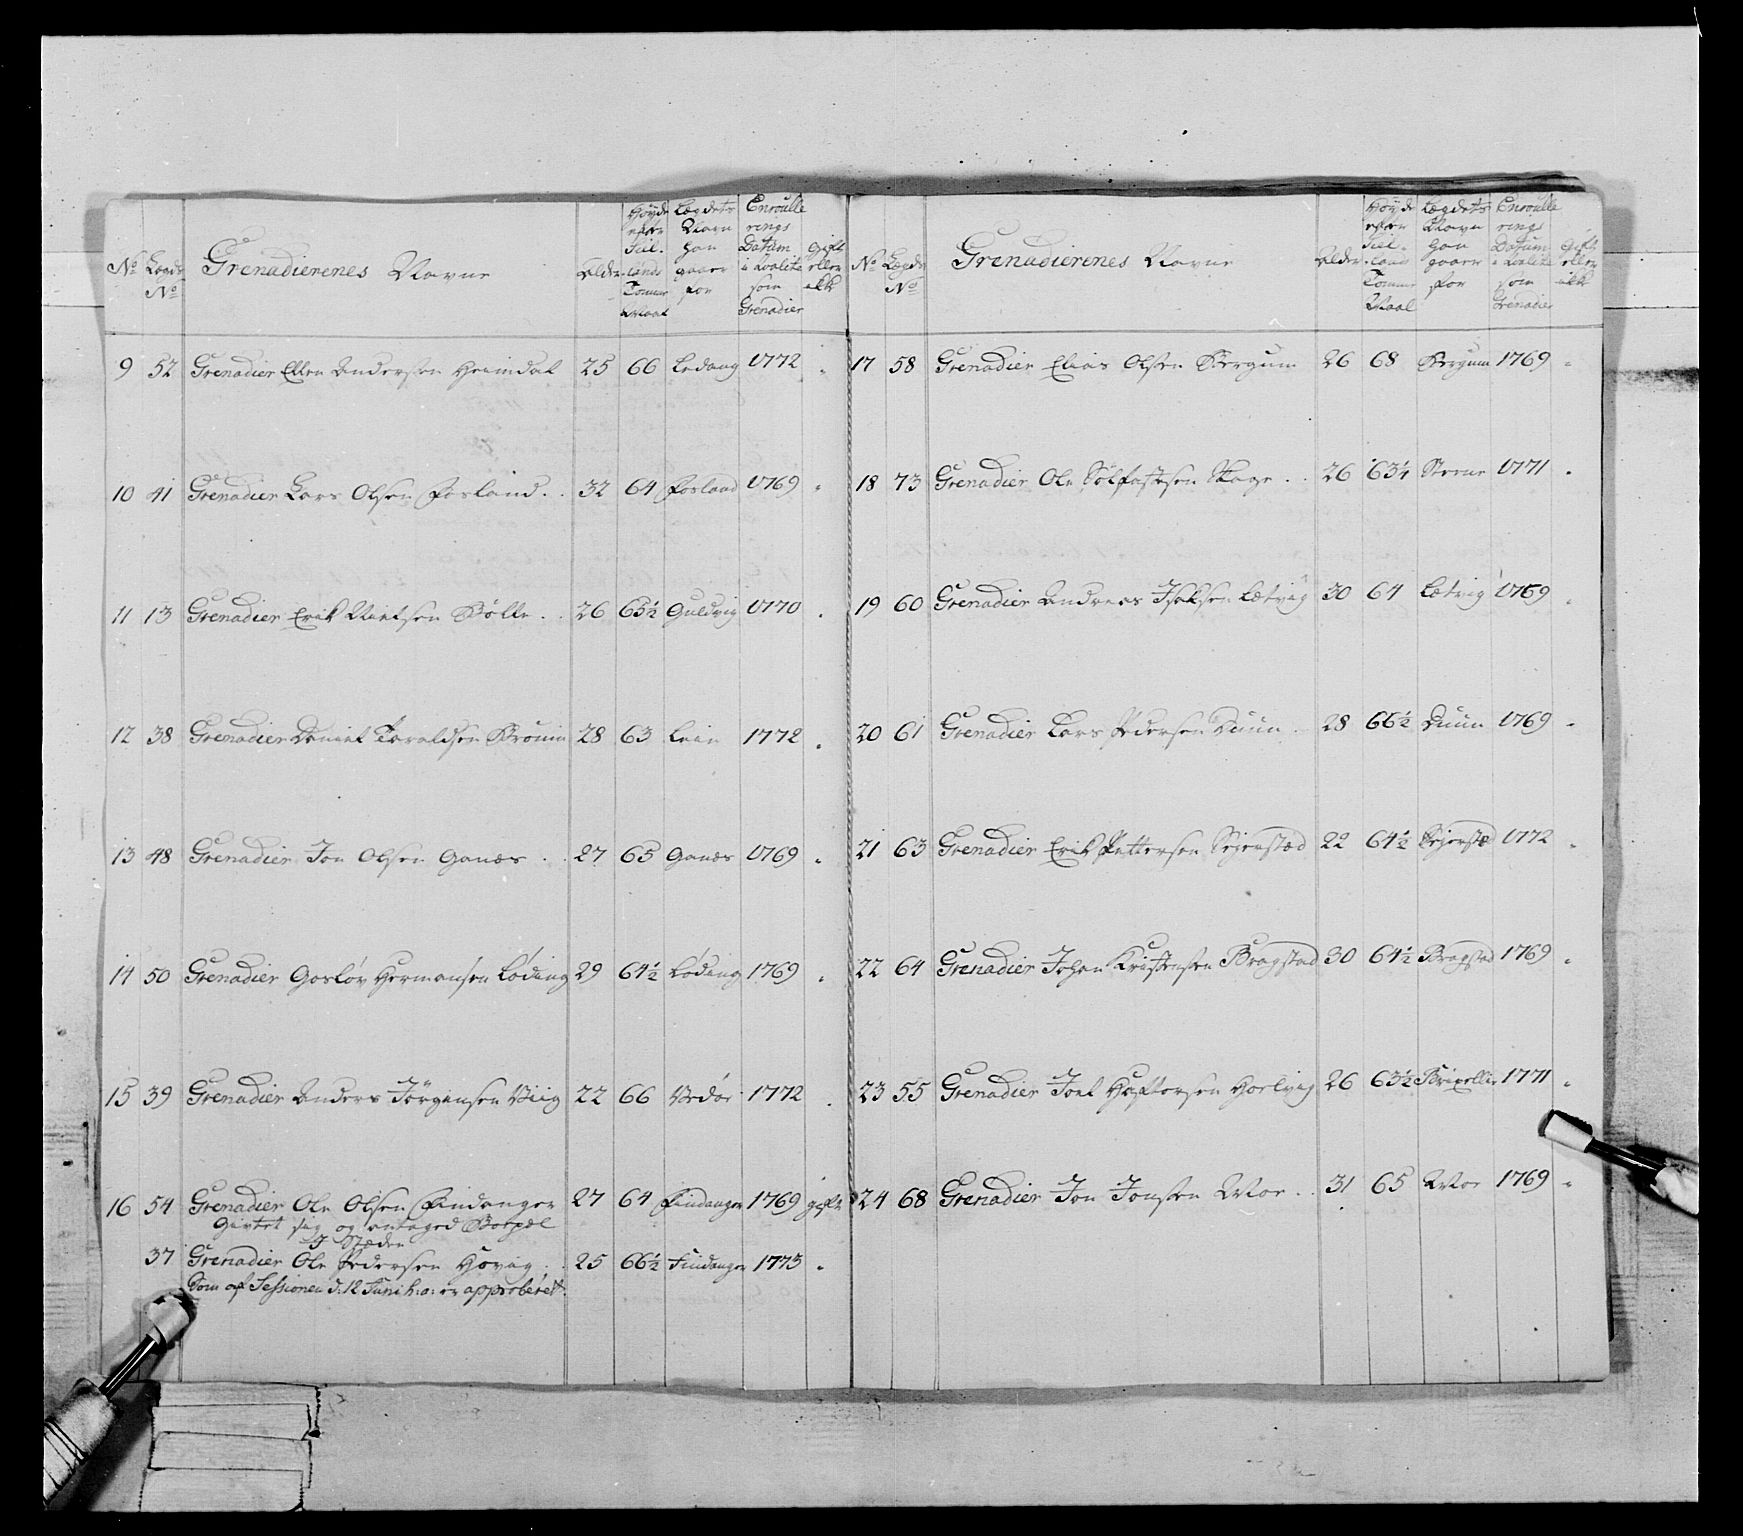 No Lægds No Grenadierenes Navne Alder Høyde efter Siel. lands Tomme Maal Lægdets Navn han gaaer for Enroulle rings Datum i Qvalite som Grenadier Gift eller ikke
9 52 Grenadier Ellen Andersen Heimdal 25 66 Ledang 1772 "
10 41 Grenadier Lars Olsen Fosland . . 32 64 Fosland 1769 "
11 13 Grenadier Erik Nielsen Bölle . . 26 65½ Guldvig 1770 .
12 38 Grenadier Daniel Taraldsen 28 63 Lein 1772 "
13 48 Grenadier Jon Olsen Ganæs . . 27 65 Ganæs 1769 "
14 50 Grenadier Gosløv Hermansen Löding 29 64½ Löding 1769 "
15 39 Grenadier Anders Jörgensen Viig 22 66 1772 .
16 54 Grenadier Ole Olsen Findanger 27 64 Findanger 1769 gift
Givtet sig og antaged
I Stæden
37 Grenadier Ole Pedersen Hovig . . 25 66½ Findanger 1773 "
Som af Sessionen d: 12 Juni h: a: er approberet.
No Lægds No Grenadierenes Navne Alder Høyde efter Siel. lands Tomme Maal Lægdets Navn han gaaer for Enroulle rings Datum i Qvalite som Grenadier Gift eller ikke
17 58 Grenadier Elias Olsen Bergum 26 68 Bergum 1769 "
18 73 Grenadier Ole Sölfastsen Skage . . 26 63¼ 1771 "
19 60 Grenadier Andreas Isaksen Lætvig 30 64 Lætvig 1769 "
20 61 Grenadier Lars Pedersen Duun . 28 66½ Duun 1769 "
21 63 Grenadier Erik Pettersen Sejerstad 22 64½ Sejerstad 1772 "
22 64 Grenadier Johan Kristensen Bragstad 30 64½ Bragstad 1769 "
23 55 Grenadier Joel Haftorsen Hoelvig 26 63½ 1771 "
24 68 Grenadier Jon Jonsen Moe . . 31 65 Moe 1769 "